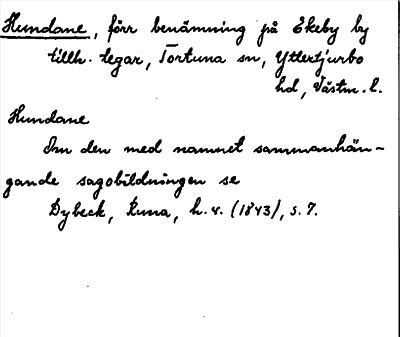 Hundane, förr benämning på Ekeby by
tillh. legar, Tortuna sn, Yttertjurbo
hd, Västm. l.
Hundane
Om den med namnet sammanhän-
gande sagobildningen se
Dybeck, Runa, h. 4. (1843), s. 7.